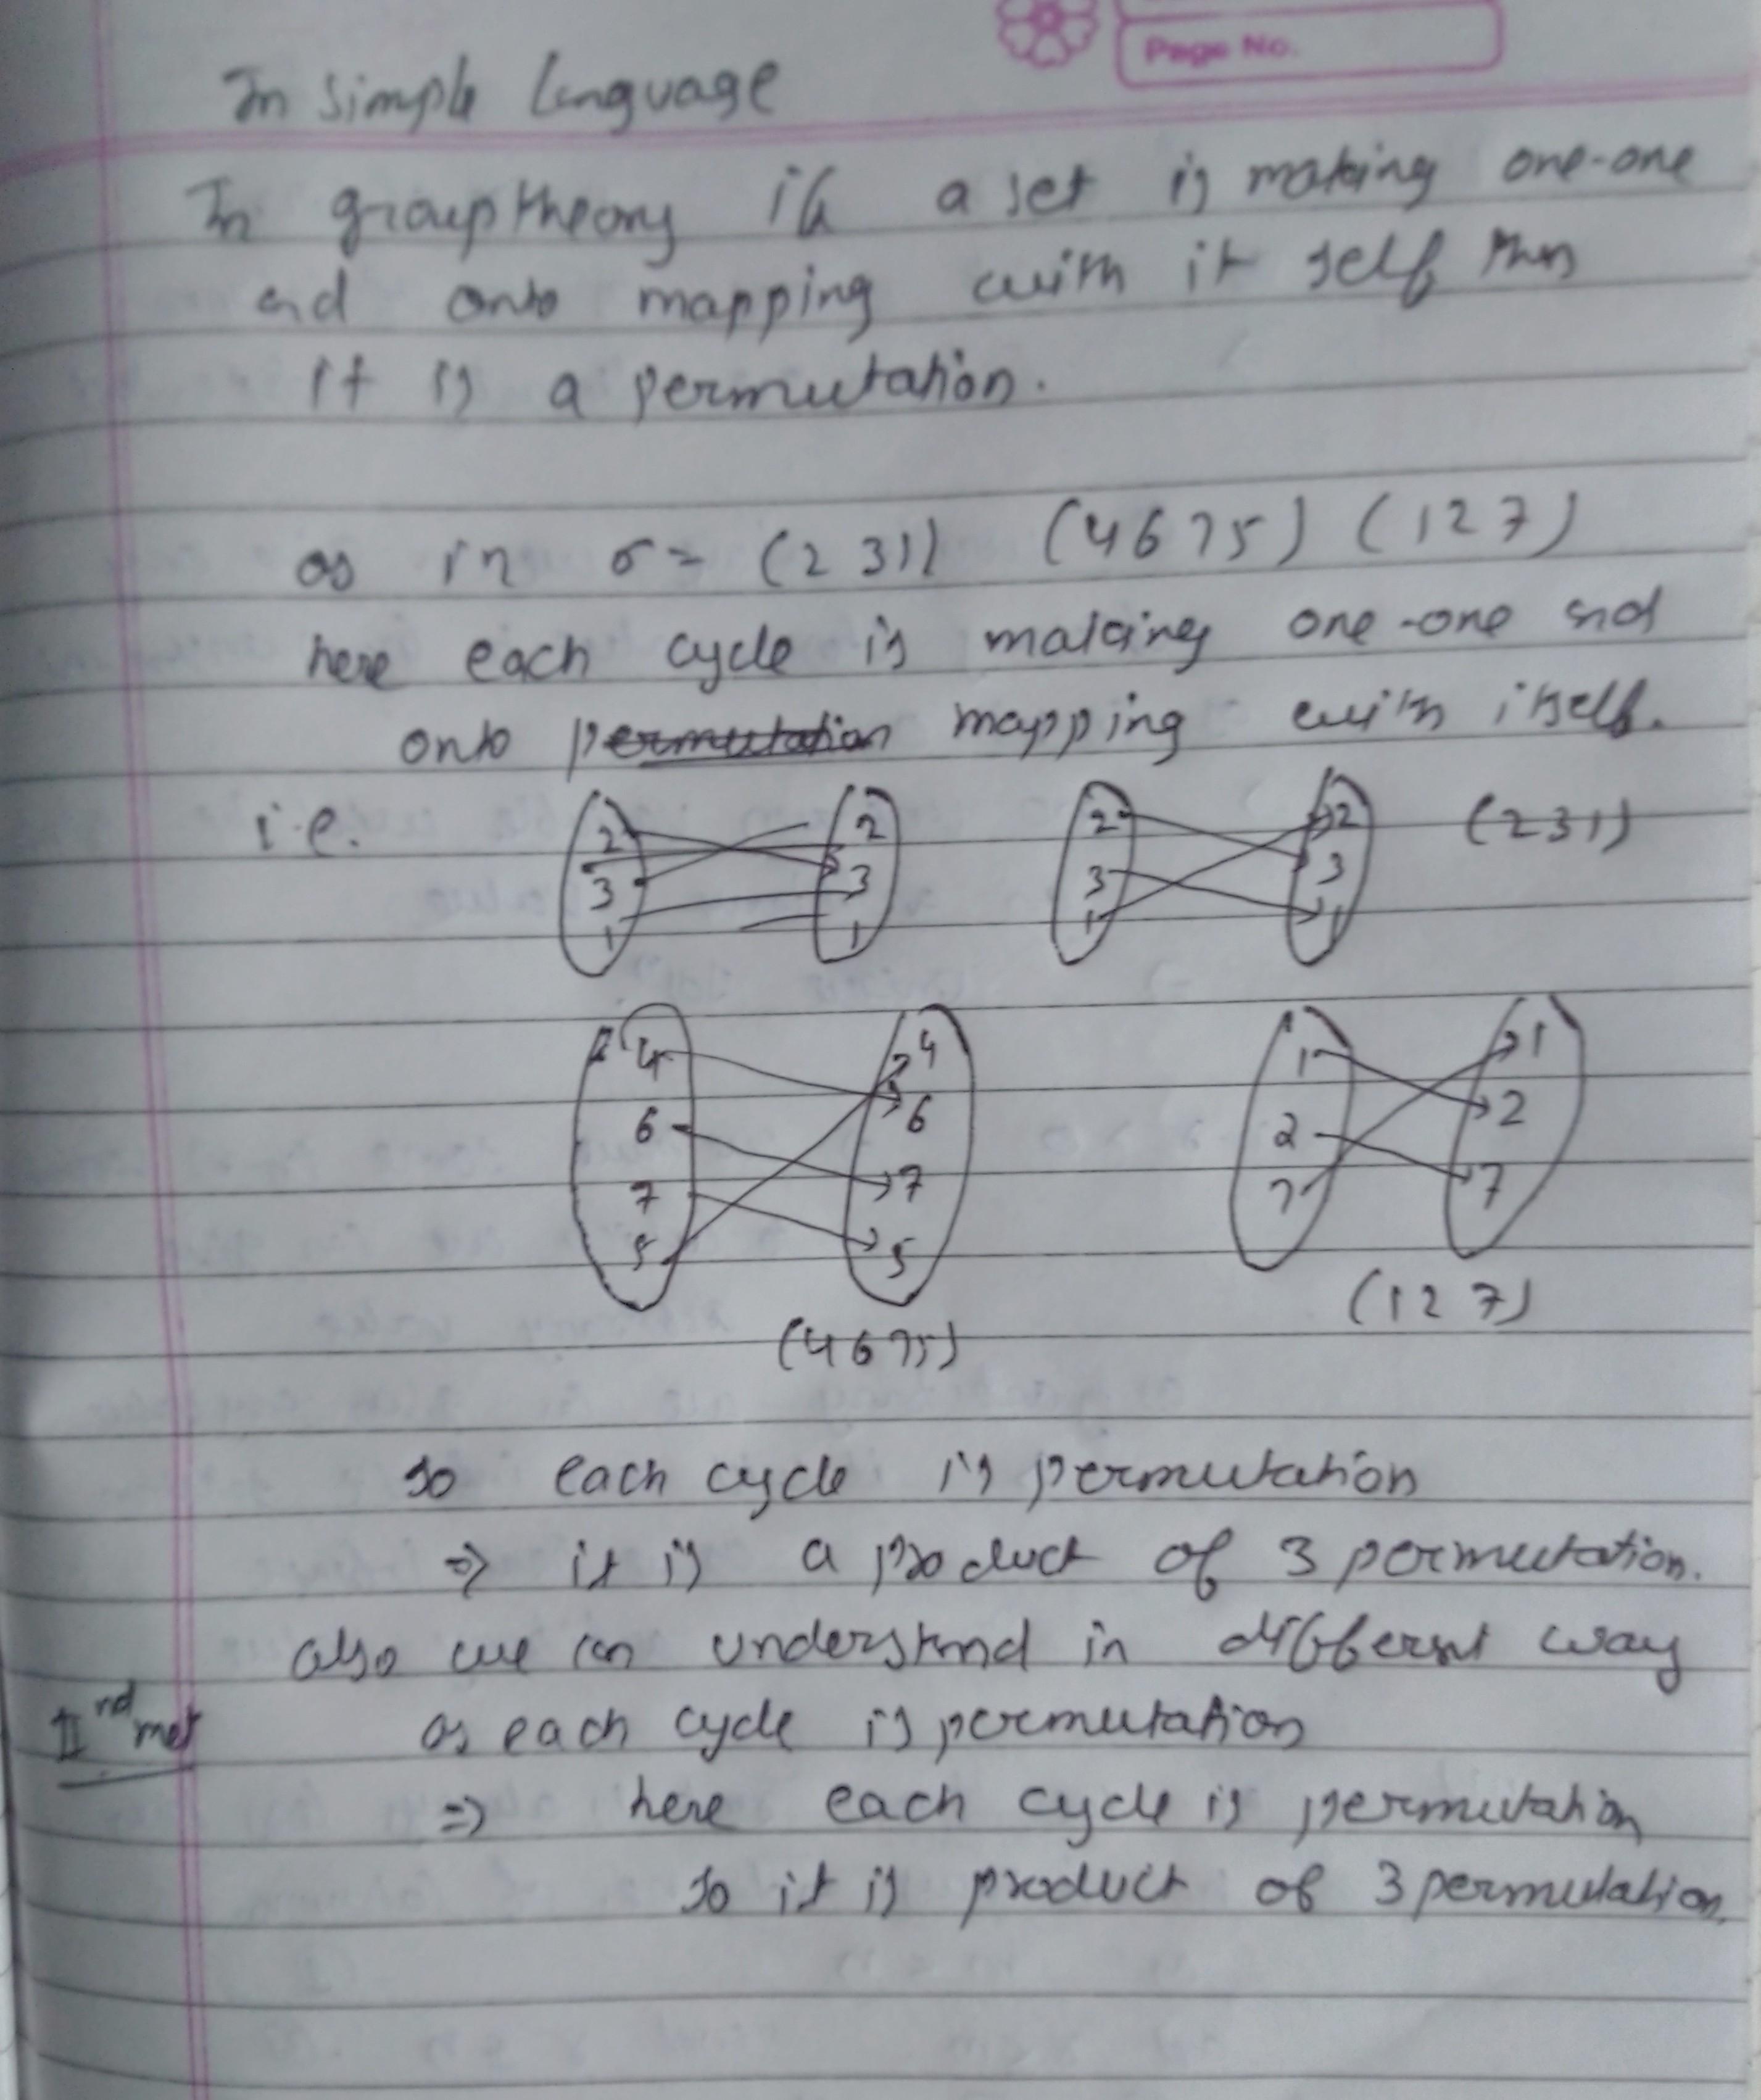 Page No.
In simple language
In group theory if a set is making one-one
and onto mapping with it self then
it is a permutation.
as in σ = (2 3 1) (4 6 7 5) (1 2 7)
here each cycle is making one-one and
onto permutation mapping with itself.
i.e. 2 3 1 2 3 1 2 3 1 2 3 1 (2 3 1)
4 6 7 5 4 6 7 5 1 2 7 1 2 7
(1 2 7)
(4 6 7 5)
so each cycle is permutation
⇒ it is a product of 3 permutation.
also we can understand in different way
IInd met as each cycle is permutation
⇒ here each cycle is permutation
so it is product of 3 permutation.